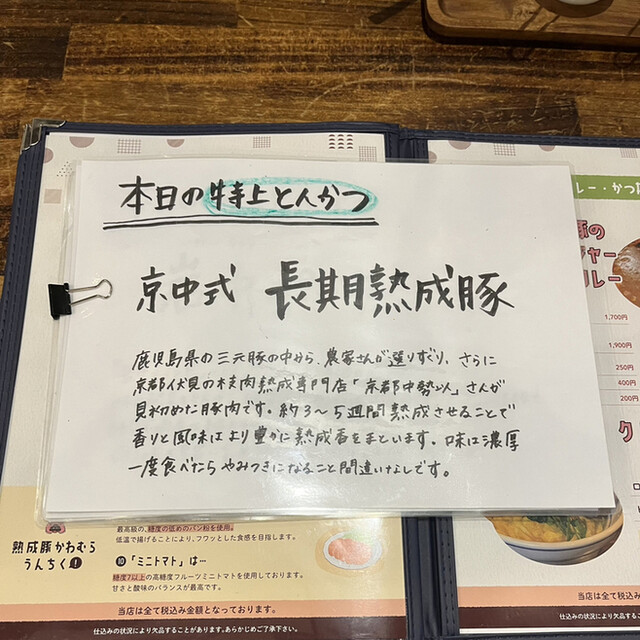 本日の特上とんかつ
京中式 長期熟成豚
鹿児島県の三元豚の中から、農家さんが選りすぐり、さらに
京都伏見の枝肉熟成専門店「京都中勢以」さんが
見初めた豚肉です。約3〜5週間熟成させることで
香りと風味はより豊かに熟成香をまといます。味は濃厚
一度食べたらやみつきになること間違いなしです。
レー・かつ
豚の
ジャー
リレー
1,700円
1,900円
250円
400円
200円
ク
熟成豚かわむら
うんちく!
最高級の、糖度の低めのパン粉を使用。
低温で揚げることにより、フワッとした食感を目指します。
⑩「ミニトマト」は…
糖度7以上の高糖度フルーツミニトマトを使用しております。
甘さと酸味のバランスが最高です。
当店は全て税込み金額となっております。
仕込みの状況により欠品することがあります。あらかじめご了承下さい。
当店は全て税込み
仕込みの状況により欠品することが